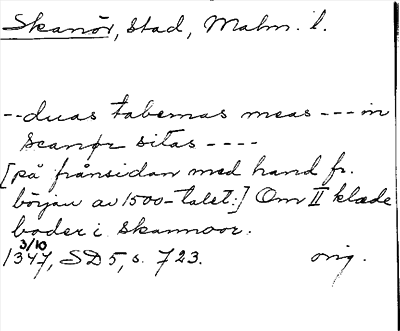 Skanör, stad, Malm. l.
-- duas tabernas meas --- in
scanør sitas ----
[på frånsidan med hand fr.
början av 1500-talet:] Om II klæde
boder i Skannoor.
3/10
1347, SD 5, s. 723. orig.